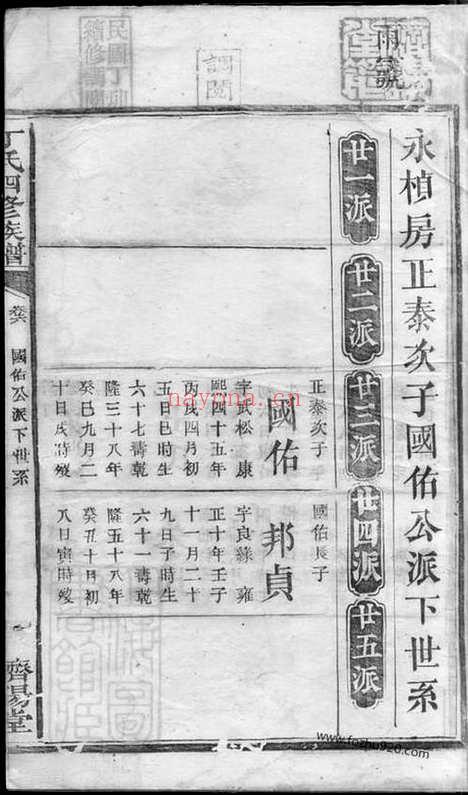 雨號
調閱
永楨房正泰次子國佑公派下世系
廿一派
廿二派
廿三派
廿四派
廿五派
正泰次子
國佑
字武松 康
熙四十五年
丙戌四月初
五日巳時生
六十七壽乾
隆三十八年
癸巳九月二
十日戌時歿
國佑長子
邦貞
字良綠 雍
正十年壬子
十一月二十
九日子時生
六十一壽乾
隆五十八年
癸丑十月初
八日寅時歿
丁氏四修族譜
卷六
國佑公派下世系
一
濟陽堂
nayona.cn
www.fozhu920.com